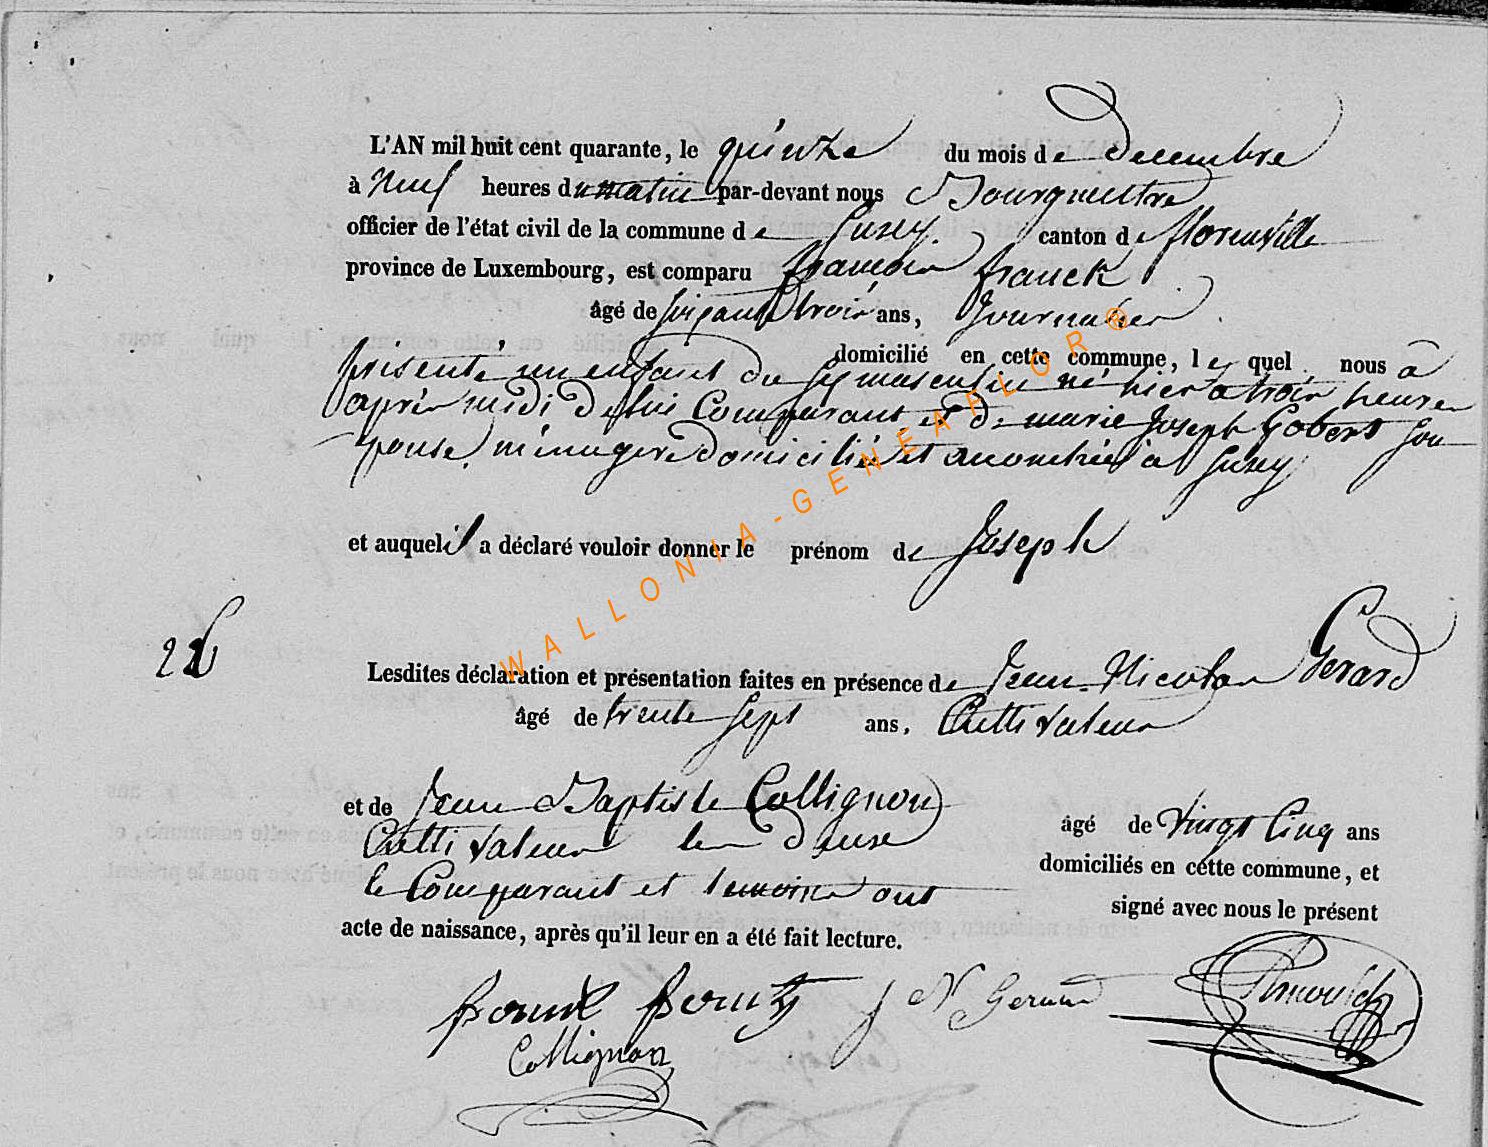 L'AN mil huit cent quarante, le quinze du mois de Decembre
à Neuf heures du matin par-devant nous Bourguestre
officier de l'état civil de la commune de Suxy. canton de florenville
province de Luxembourg, est comparu françois franck
âgé de soixante trois ans, Journalier
domicilié en cette commune, le quel nous a
présenté un enfant du sex masculin né hier a trois heures
après midi de lui Comparant et de marie Joseph Gobert son
epouse, ménagere domicilié et accouchée a Suxy
et auquel il a déclaré vouloir donner le prénom de Joseph
22
Lesdites déclaration et présentation faites en présence de Jean-Nicolas Gerard
âgé de trente sept ans, Cultivateur
et de Jean Baptiste Collignon
âgé de vingt Cinq ans
Cultivateur
domiciliés en cette commune, et
le Comparant et temoins ont
signé avec nous le présent
acte de naissance, après qu'il leur en a été fait lecture.
J N Gerard
Collignon
WALLONIA-GENEAFLOR®